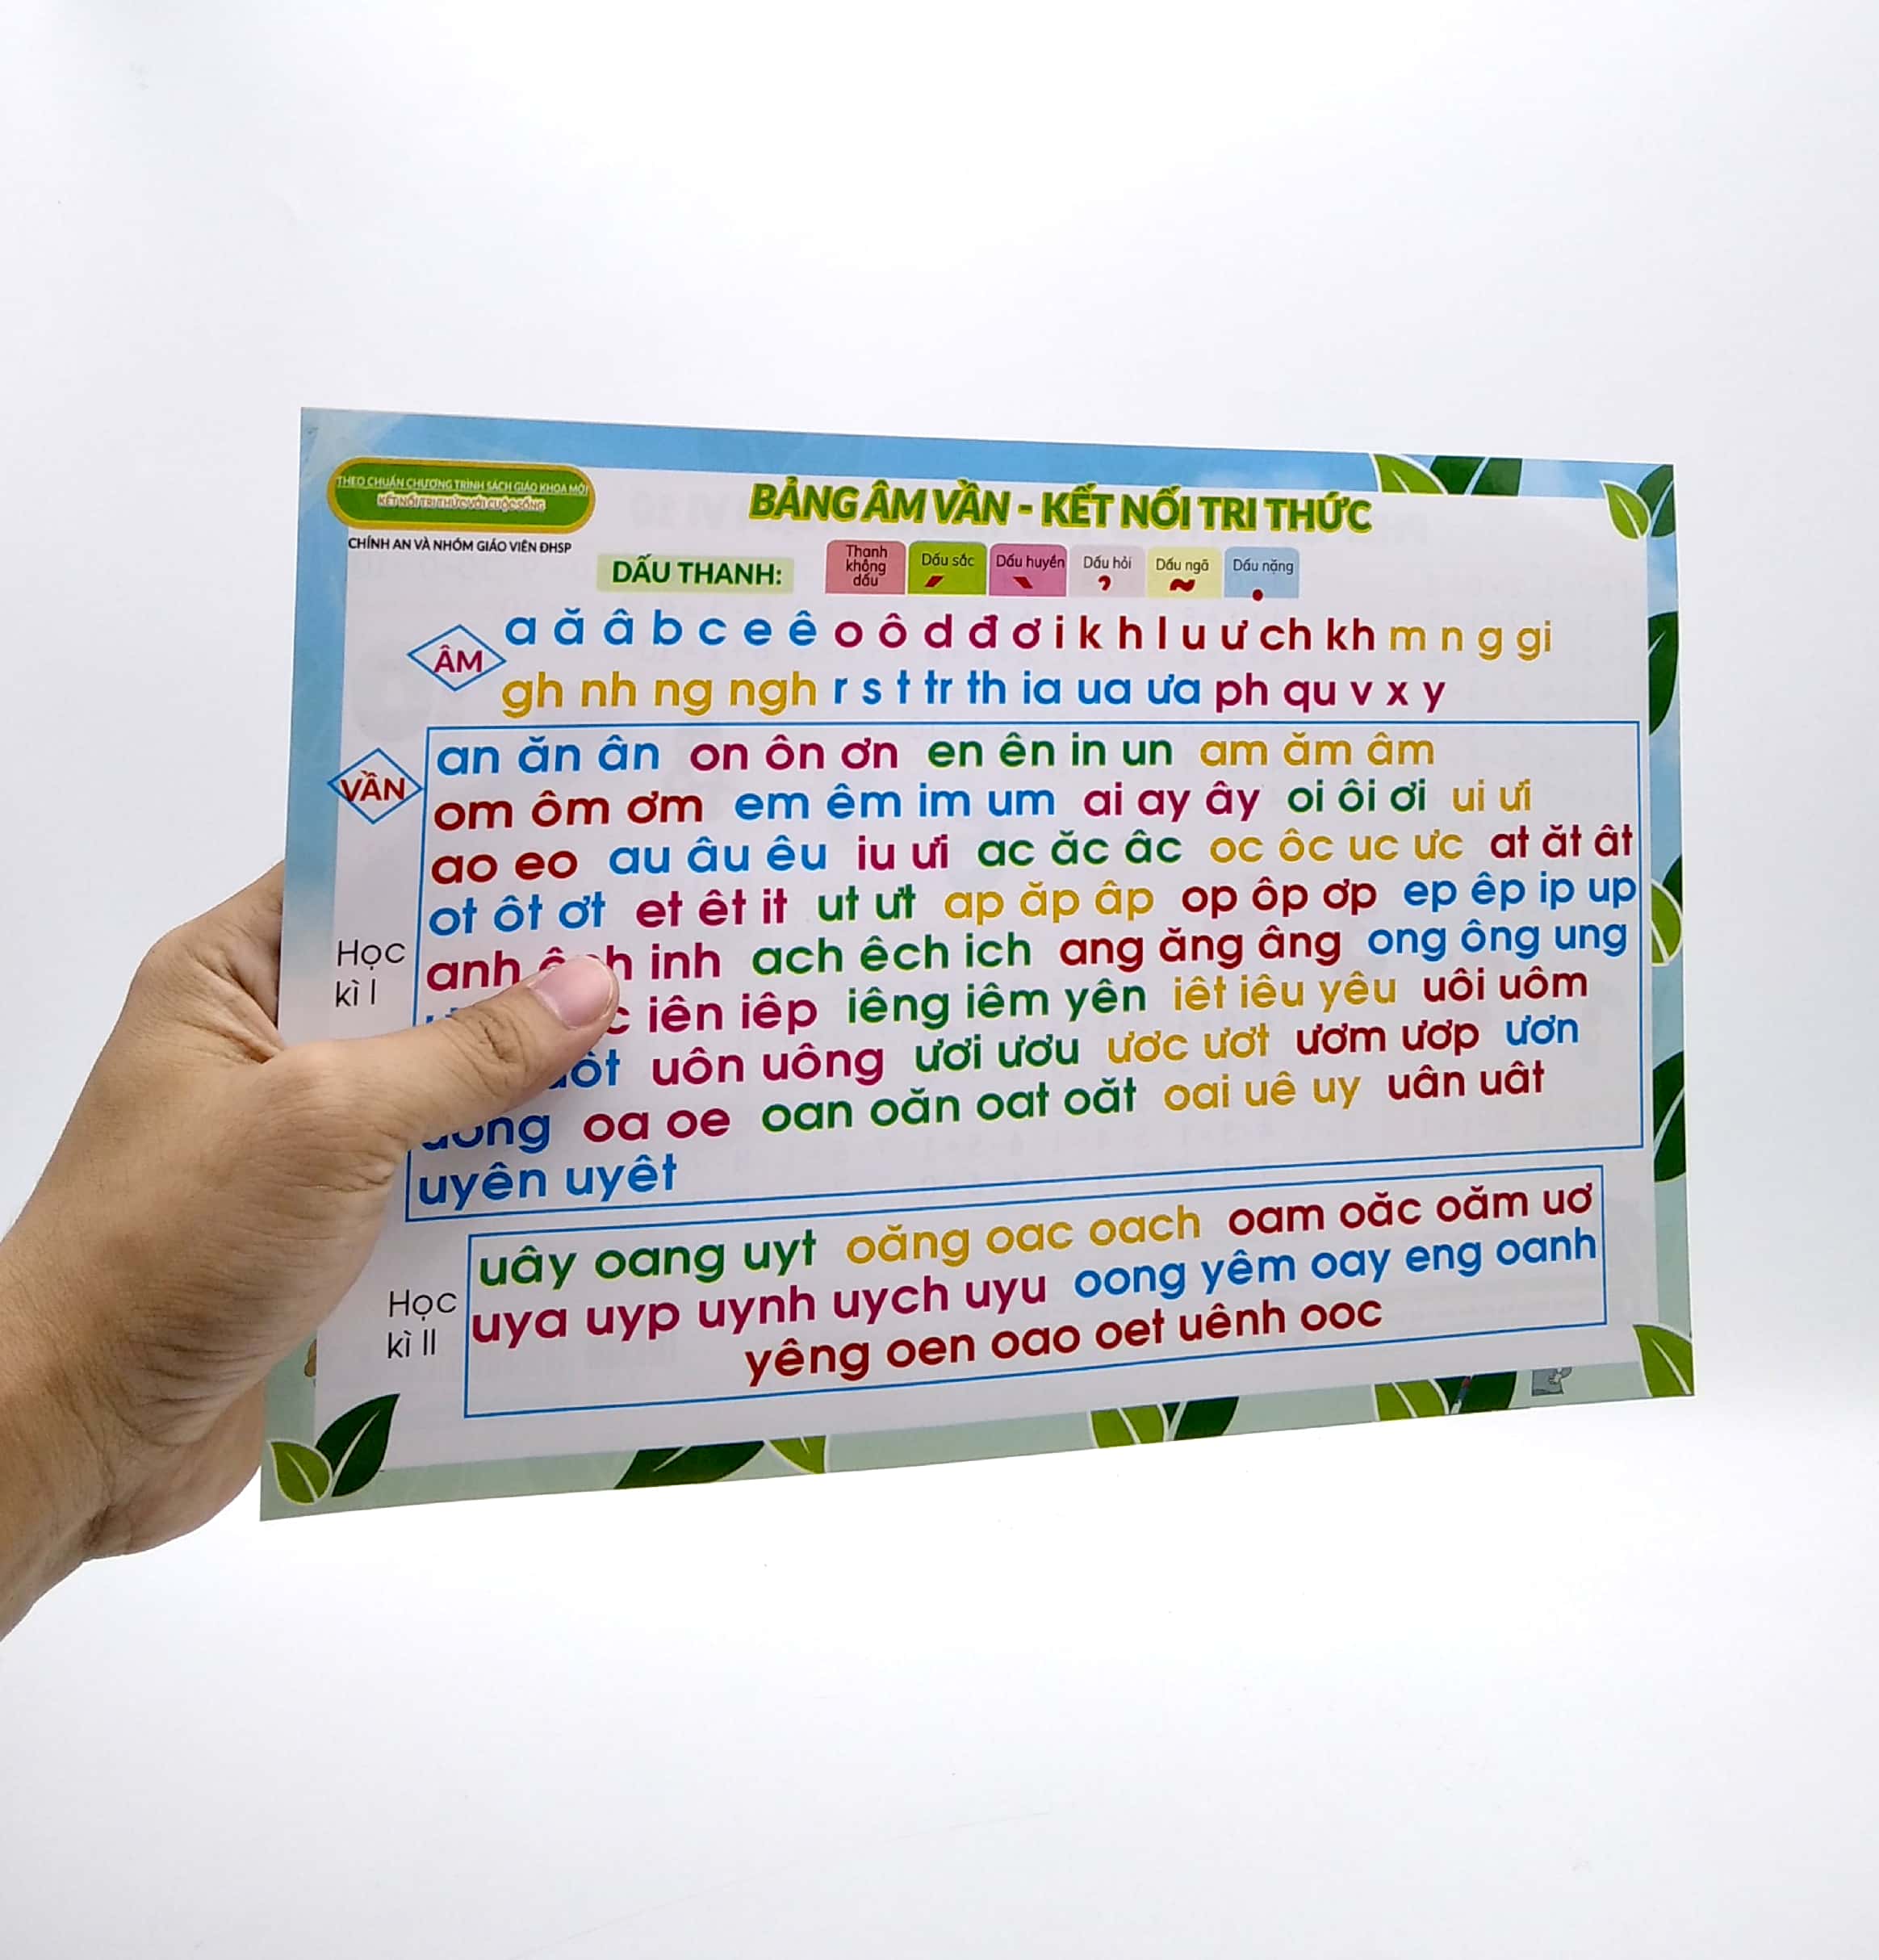 THEO CHUẨN CHƯƠNG TRÌNH SÁCH GIÁO KHOA MỚI
KẾT NỐI TRI THỨC VỚI CUỘC SỐNG
CHÍNH AN VÀ NHÓM GIÁO VIÊN ĐHSP
BẢNG ÂM VẦN - KẾT NỐI TRI THỨC
DẤU THANH:
Thanh không dấu
Dấu sắc
Dấu huyền
Dấu hỏi
Dấu ngã
Dấu nặng
ÂM
a ă â b c e ê o ô d đ ơ i k h l u ư ch kh m n g gi
gh nh ng ngh r s t tr th ia ua ưa ph qu v x y
VẦN
Học kì I
an ăn ân on ôn ơn en ên in un am ăm âm
om ôm ơm em êm im um ai ay ây oi ôi ơi ui ưi
ao eo au âu êu iu ưi ac ăc âc oc ôc uc ưc at ăt ât
ot ôt ơt et êt it ut ưt ap ăp âp op ôp ơp ep êp ip up
anh inh ach êch ich ang ăng âng ong ông ung
iên iêp iêng iêm yên iêt iêu yêu uôi uôm
uôn uông ươi ươu ươc ươt ươm ươp ươn
oa oe oan oăn oat oăt oai uê uy uân uât
uyên uyêt
Học kì II
uây oang uyt oăng oac oach oam oăc oăm uơ
uya uyp uynh uych uyu oong yêm oay eng oanh
yêng oen oao oet uênh ooc